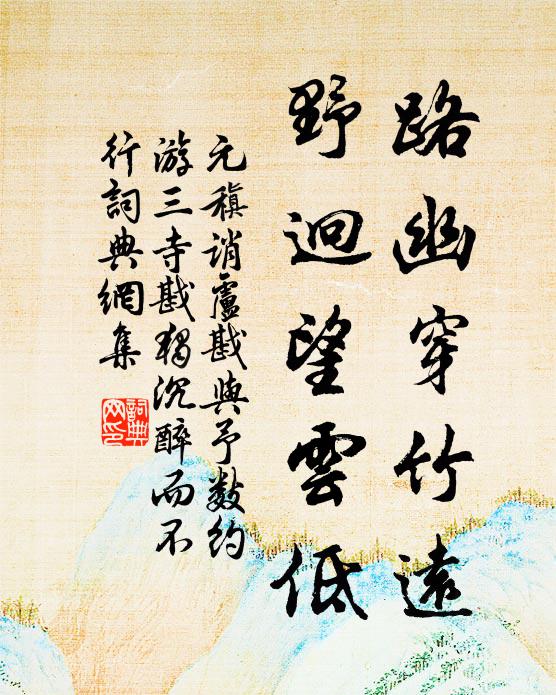 路幽穿竹遠
野迥望雲低
元稹誚盧戡與予数约
游三寺戡獨沉醉而不
行詞典網集
詞典
网印